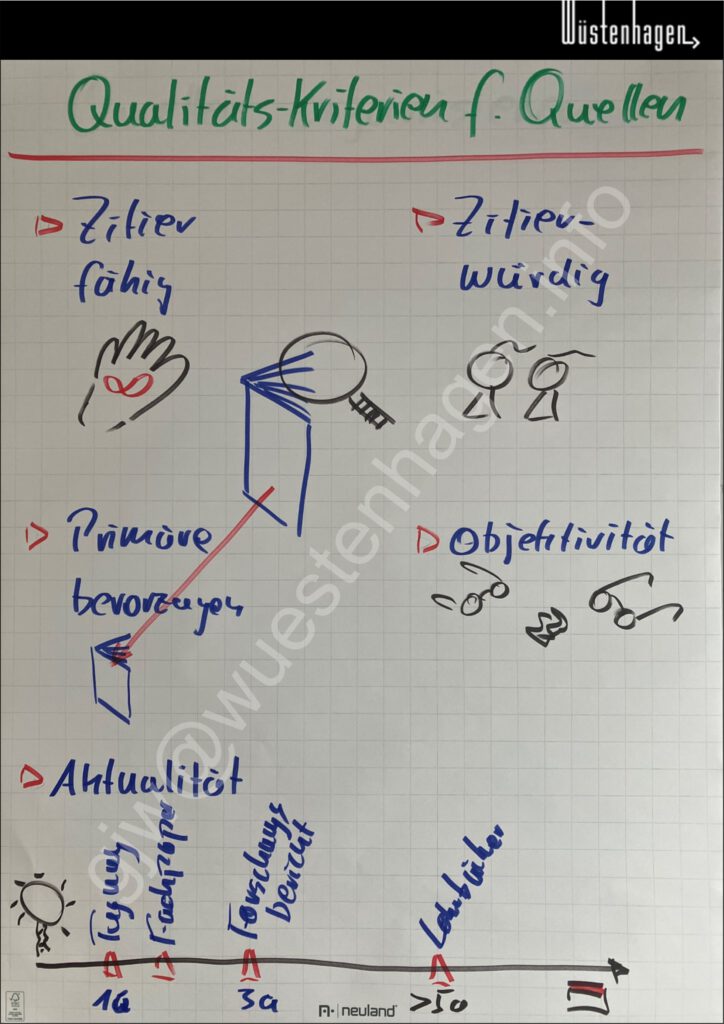 Wüstenhagen
Qualitäts-Kriterien f. Quellen
Zitier
fähig
Zitier-
würdig
Primäre
bevorzugen
Objektivität
Aktualität
Tagung
Fachpaper
Forschungs
bericht
Lehrbücher
1a
3a
neuland
gjw@wuestenhagen.info